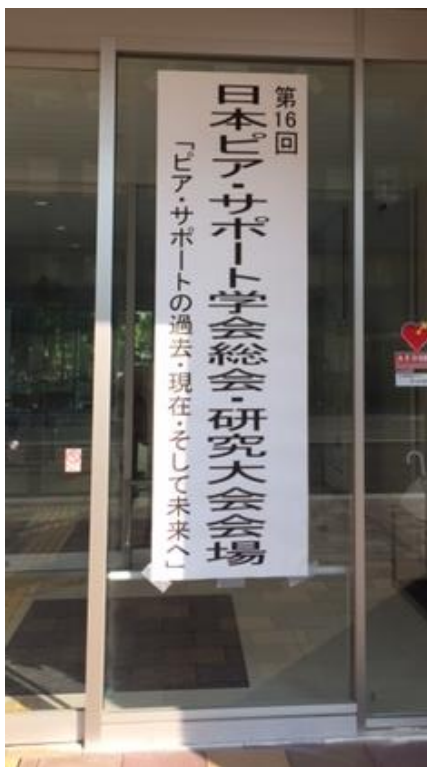 第16回
日本ピア・サポート学会総会・研究大会会場
「ピア・サポートの過去・現在・そして未来へ」